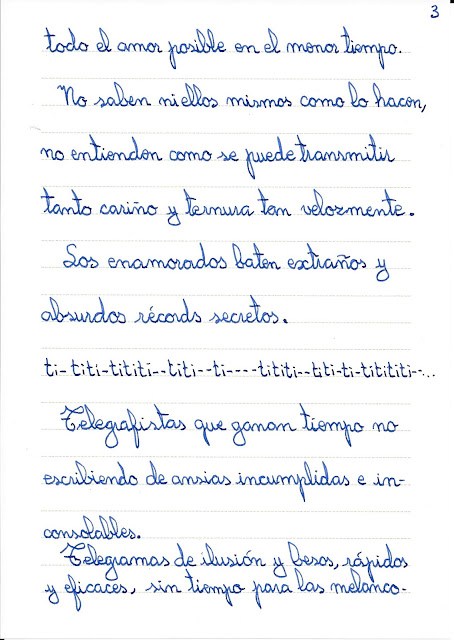 3
todo el amor posible en el menor tiempo.
No saben ni ellos mismos como lo hacen,
no entienden como se puede transmitir
tanto cariño y ternura tan velozmente.
Los enamorados baten extraños y
absurdos récords secretos.
ti-titi-tititi--titi--ti----tititi--titi-ti-titititi--...
Telegrafistas que ganan tiempo no
escribiendo de ansias incumplidas e in-
consolables.
Telegramas de ilusión y besos, rápidos
y eficaces, sin tiempo para las melanco-